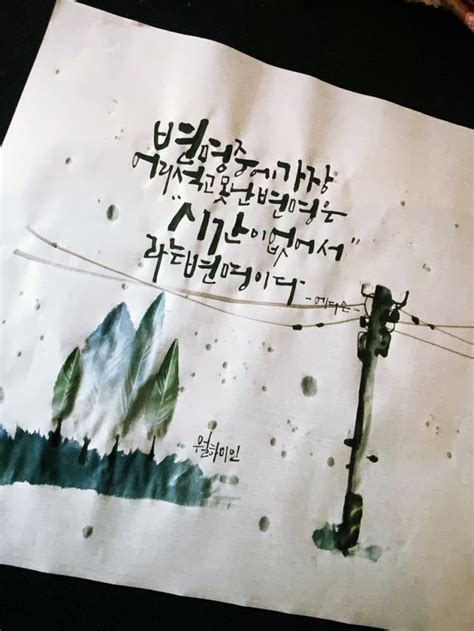 변명중에가장
어리석고못난변명은
"시간이없어서"
라는변명이다
-에디슨-
월하미인